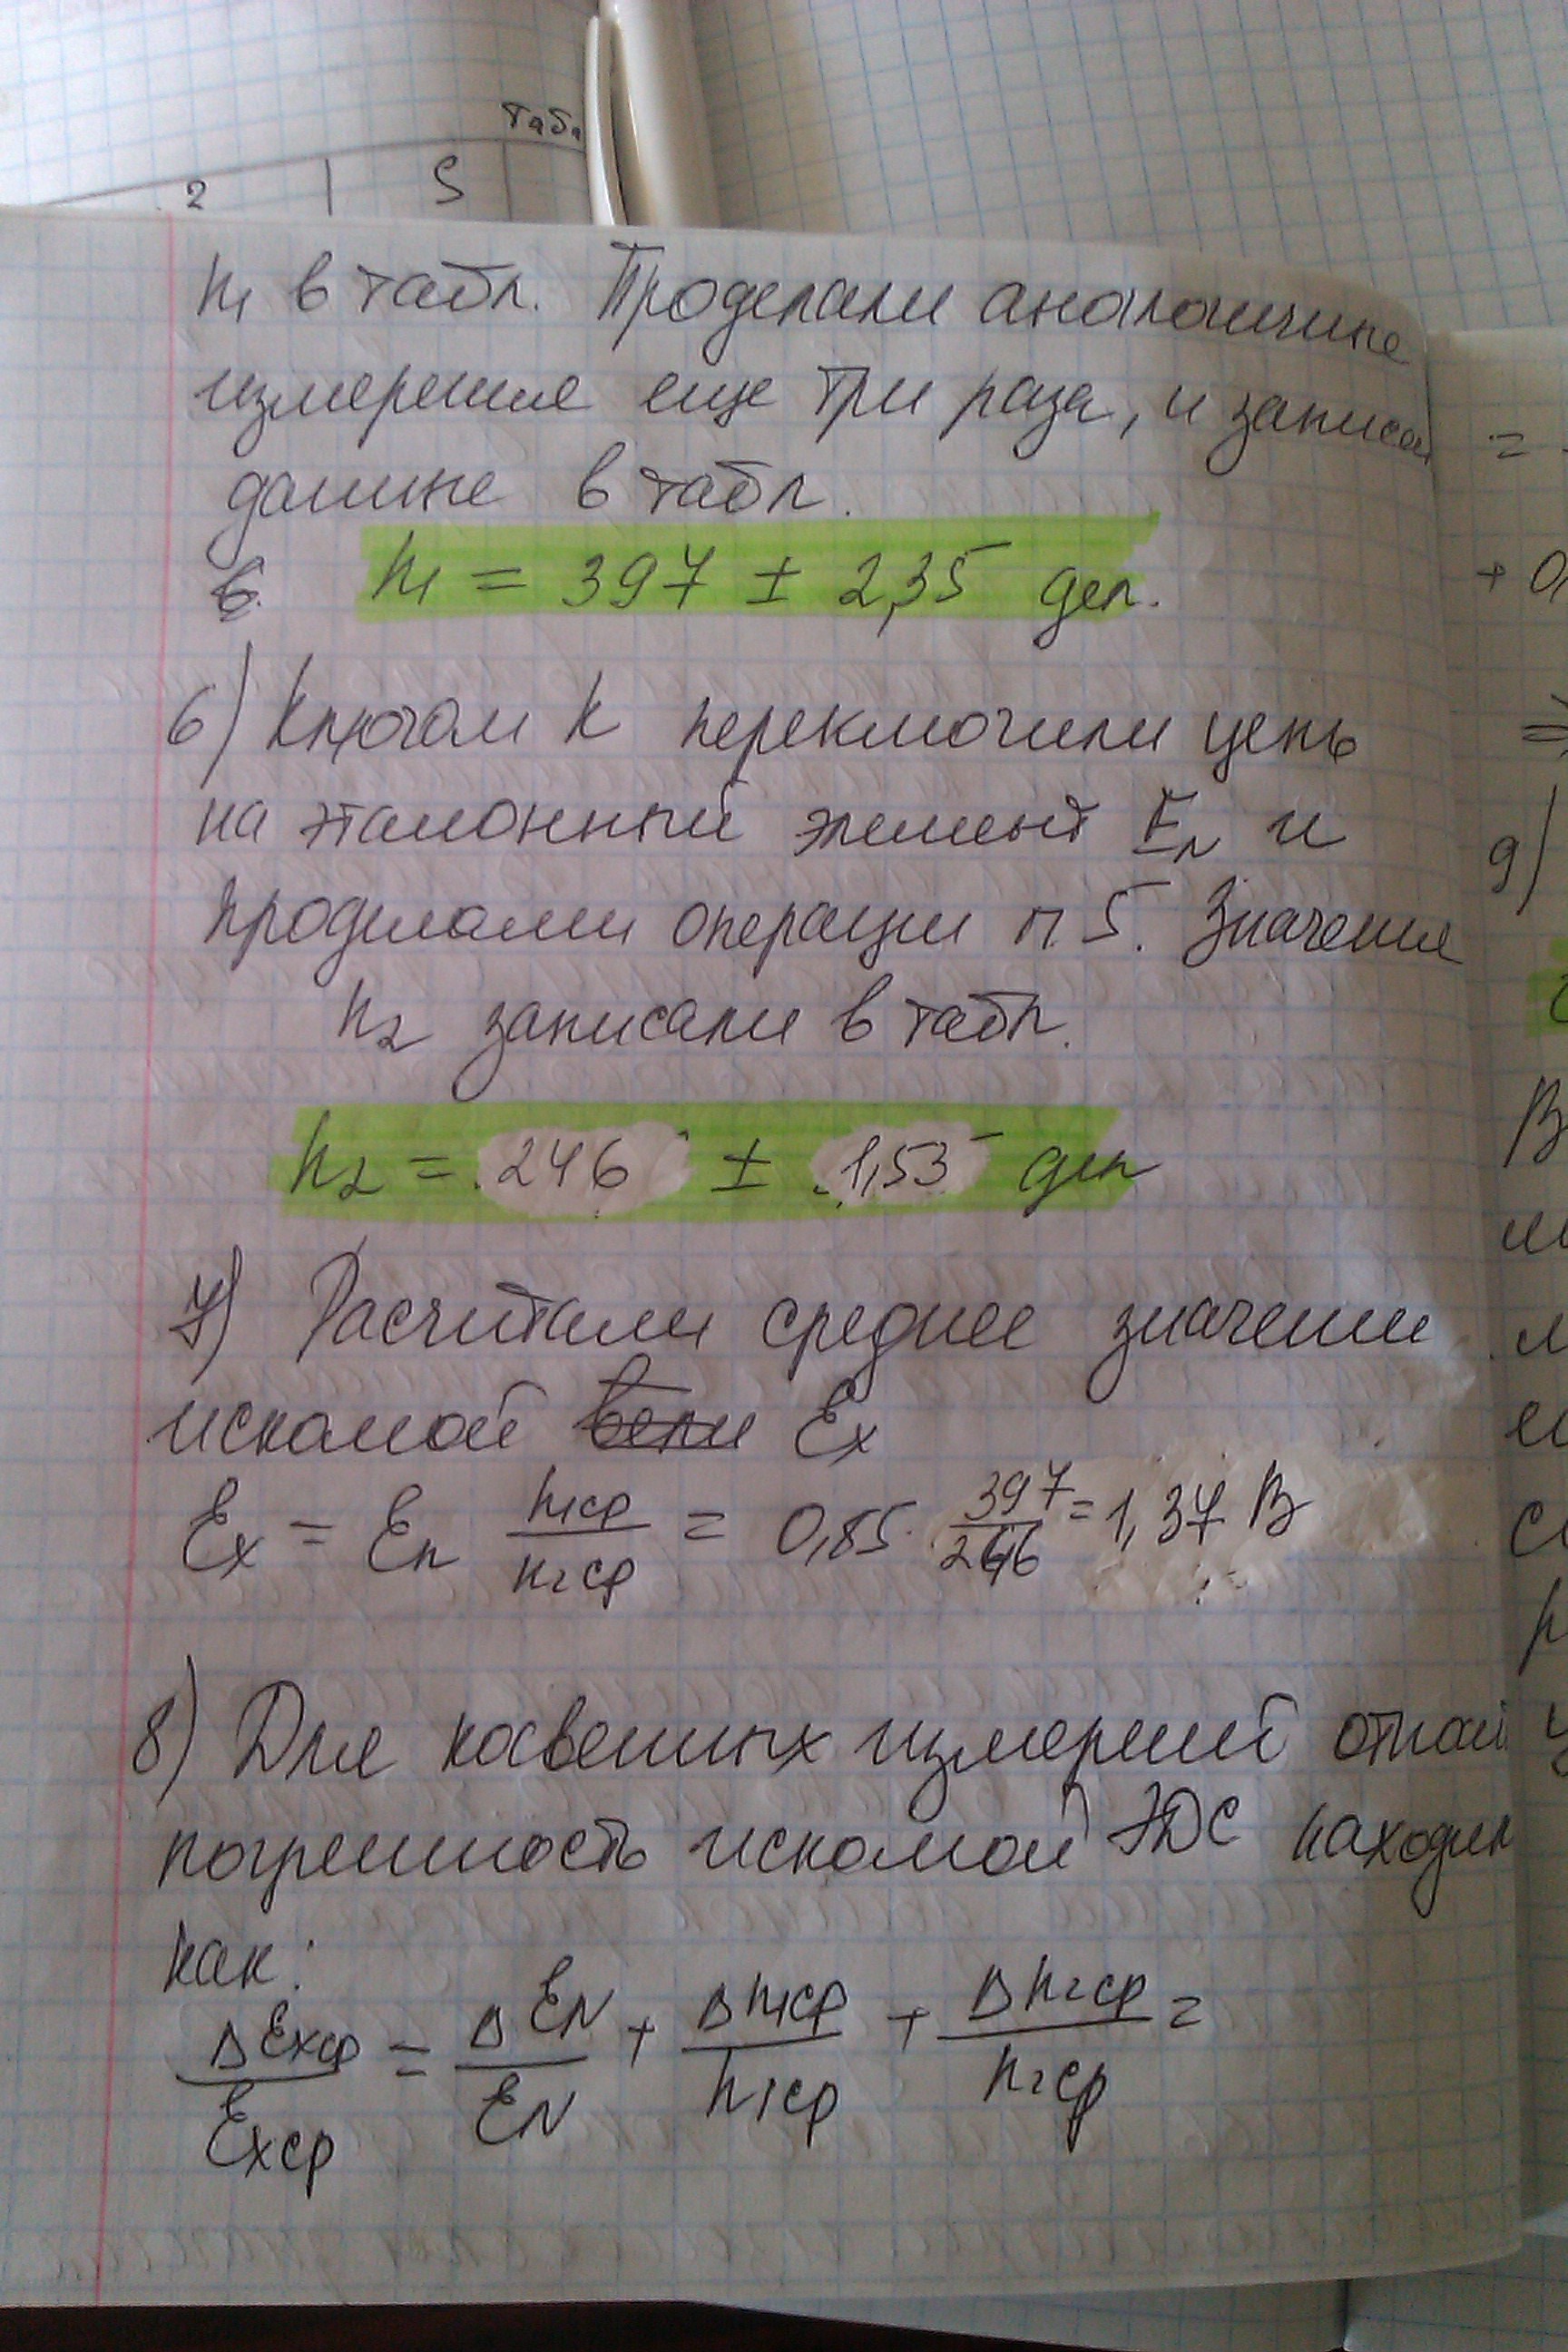 Табл
2 | S
n₁ в табл. Проделали аналогичные
измерения еще три раза, и записал
данные в табл.
6. n₁ = 397 ± 2,35 дел.
6) Ключом К переключили цепь
на эталонный элемент E_N и
проделали операции п.5. Значения
n₂ записали в табл.
n₂ = 246 ± 1,53 дел
7) Расчитали среднее значение
искомой вели Ex
Ex = En n₁ср/n₂ср = 0,85 · 397/246 = 1,37 В
8) Для косвенных измерений относ
погрешность искомой ЭДС находим
как:
ΔExср/Exср = ΔE_N/E_N + Δn₁ср/n₁ср + Δn₂ср/n₂ср =
=
+ 0,
⇒
9)
В